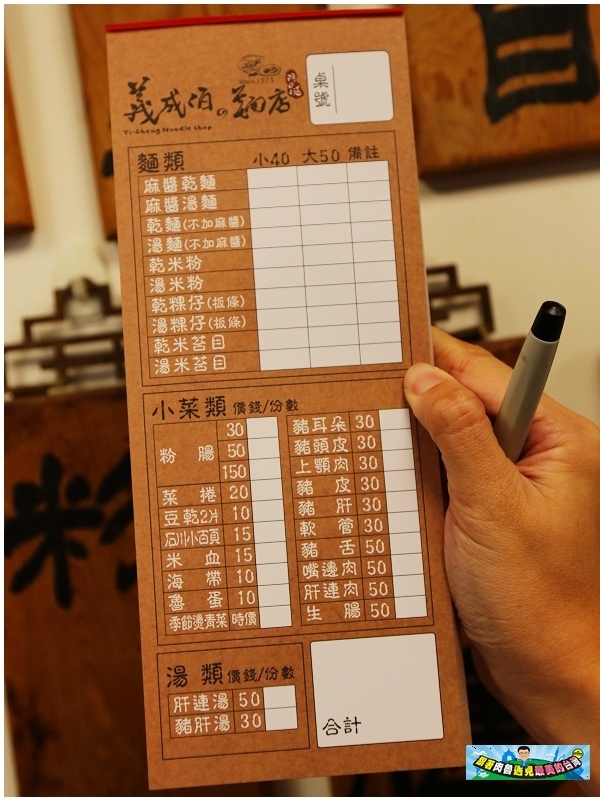 Since 1973
義成伯の麵店
Yi-Cheng Noodle shop
桌號
麵類 小40 大50 備註
麻醬乾麵
麻醬湯麵
乾麵(不加麻醬)
湯麵(不加麻醬)
乾米粉
湯米粉
乾粿仔(板條)
湯粿仔(板條)
乾米苔目
湯米苔目
小菜類 價錢/份數
粉腸 30
50
150
菜捲 20
豆乾2片 10
石川小百頁 15
米血 15
海帶 10
魯蛋 10
季節燙青菜 時價
豬耳朵 30
豬頭皮 30
上顎肉 30
豬皮 30
豬肝 30
軟管 30
豬舌 50
嘴邊肉 50
肝連肉 50
生腸 50
湯類 價錢/份數
肝連湯 50
豬肝湯 30
合計
跟著肉魯遇見最美的台灣